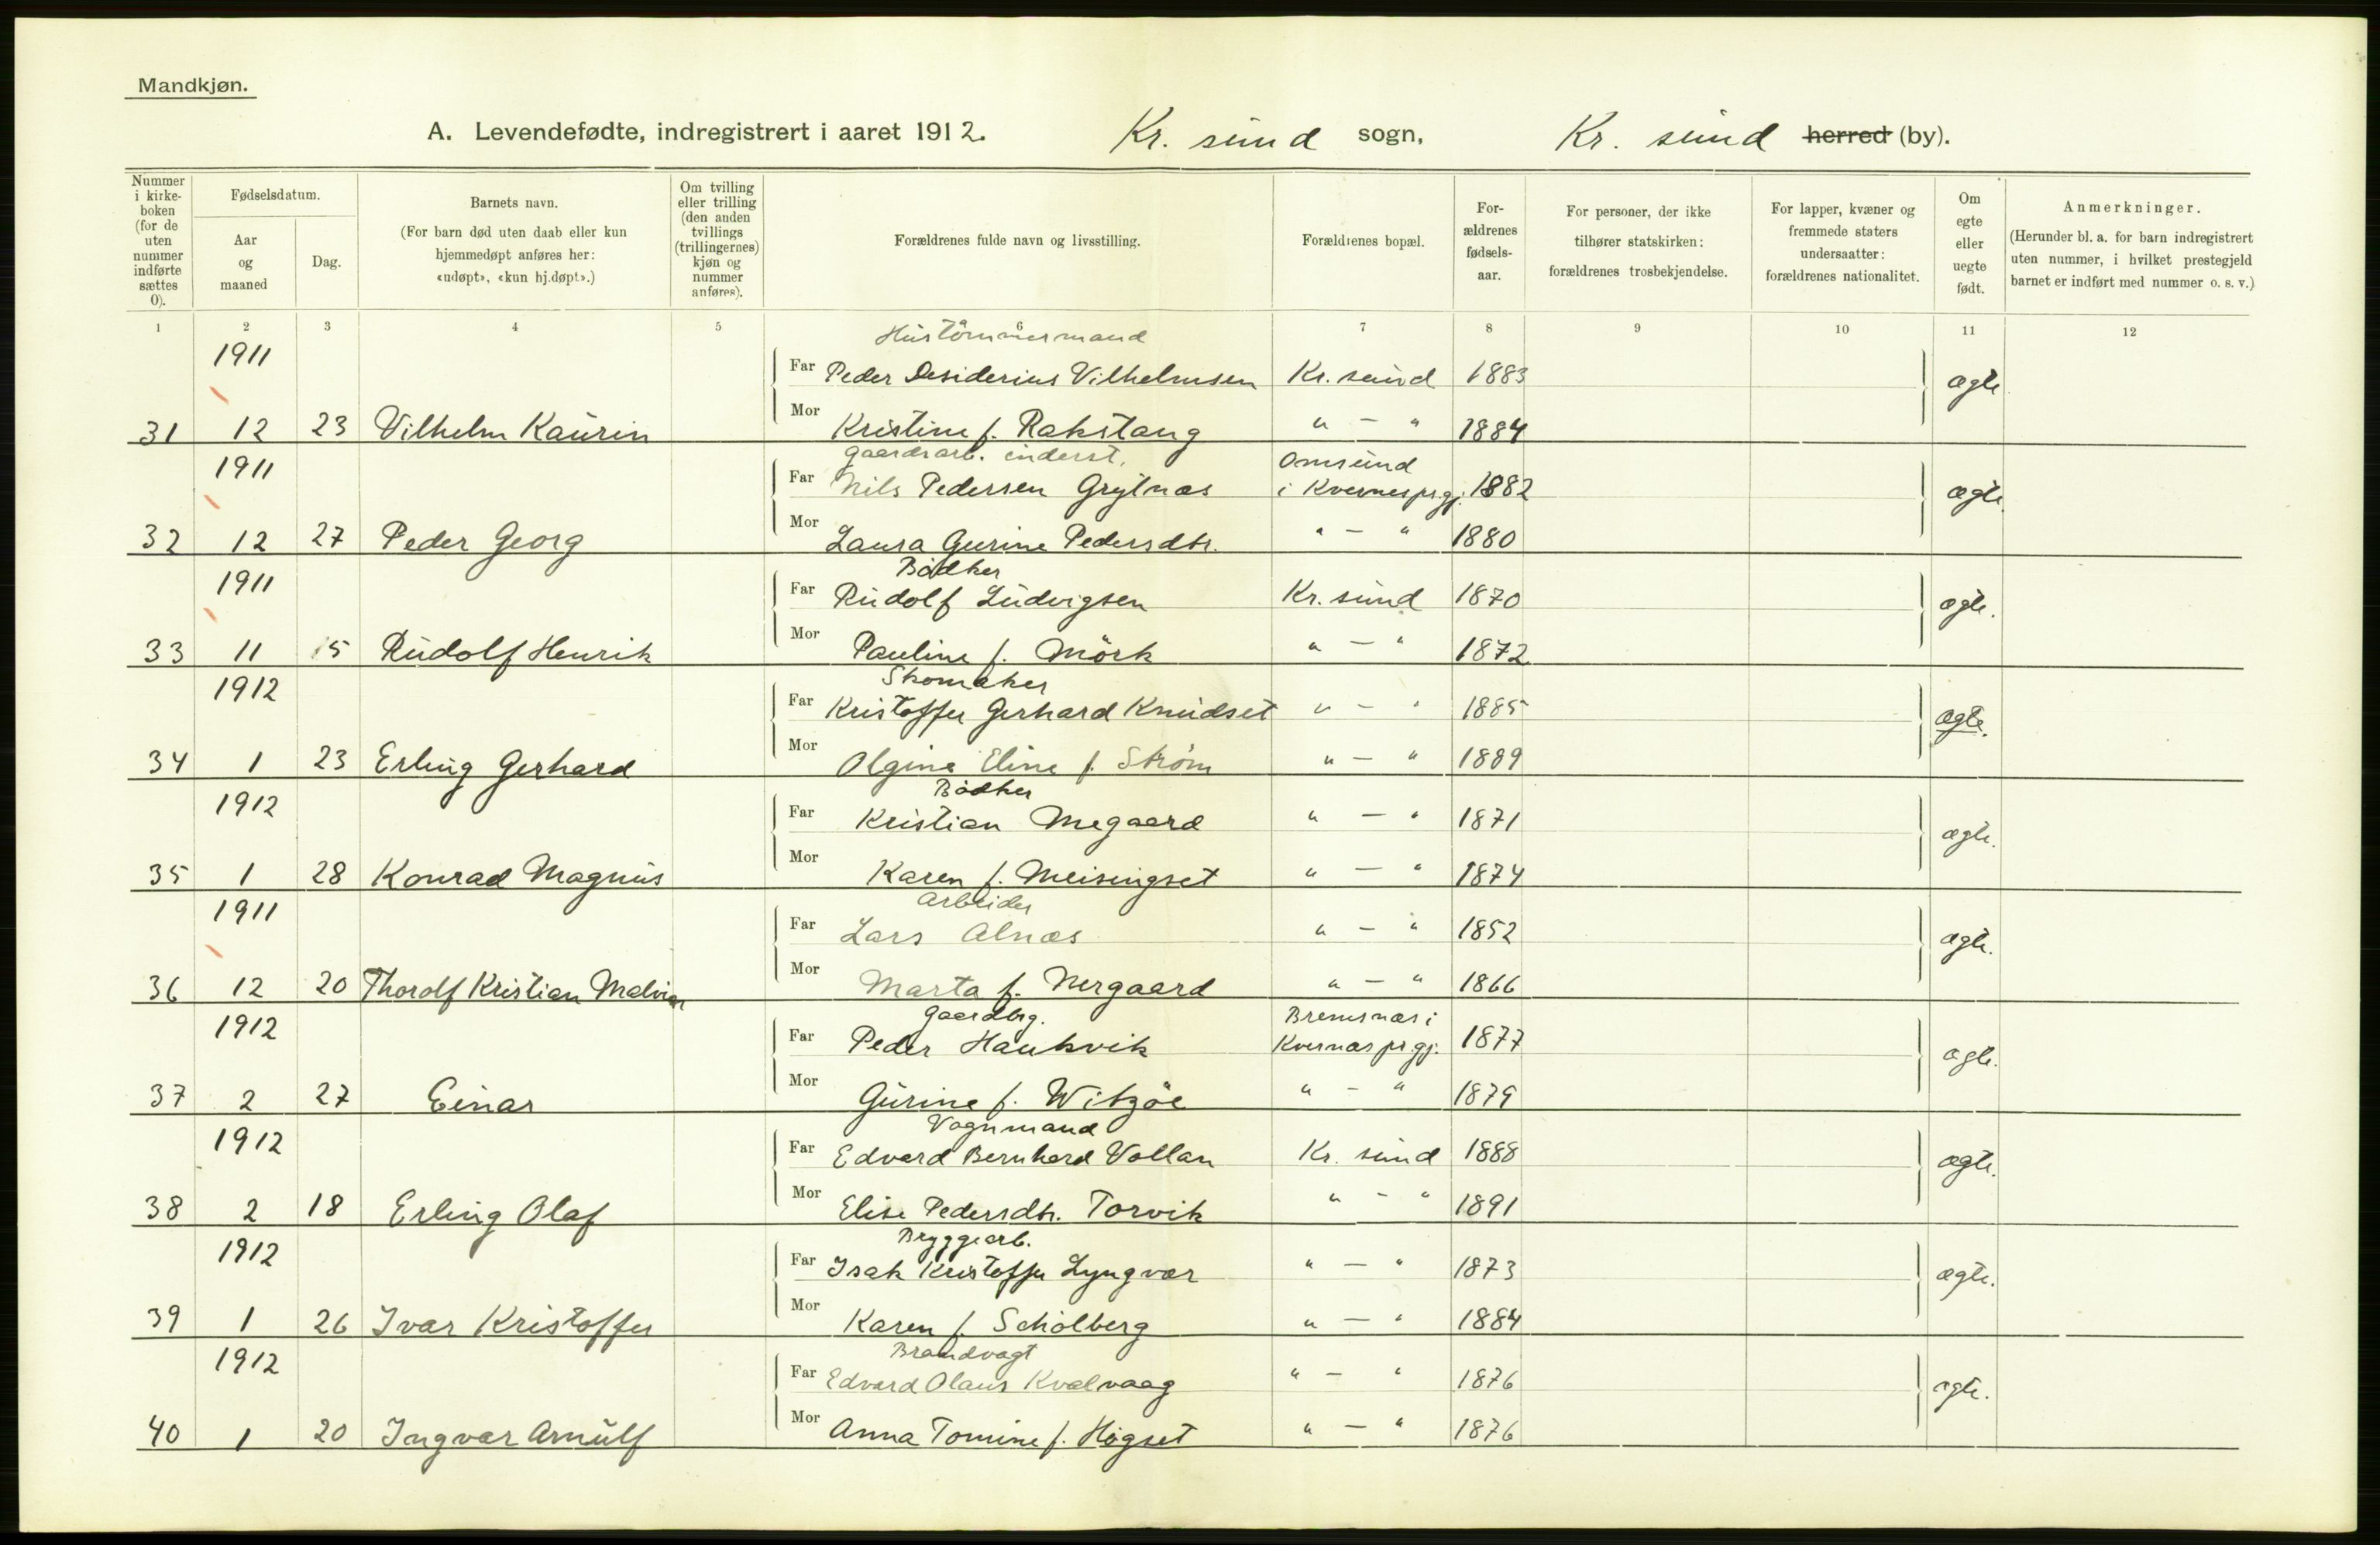 Mandkjøn.
A. Levendefødte, indregistrert i aaret 1912. Kr. sund sogn, Kr. sund herred (by).
Nummer i kirke-boken (for de uten nummer indførte sættes 0). Fødselsdatum. Aar og maaned Dag. Barnets navn. (For barn død uten daab eller kun hjemmedøpt anføres her: «udøpt», «kun hj.døpt».) Om tvilling eller trilling (den anden tvillings (trillingernes) kjøn og nummer anføres). Forældrenes fulde navn og livsstilling. Forældrenes bopæl. For-ældrenes fødsels-aar. For personer, der ikke tilhører statskirken: forældrenes trosbekjendelse. For lapper, kvæner og fremmede staters undersaatter: forældrenes nationalitet. Om egte eller uegte født. Anmerkninger. (Herunder bl. a. for barn indregistrert uten nummer, i hvilket prestegjeld barnet er indført med nummer o. s. v.)
1 2 3 4 5 6 7 8 9 10 11 12
Hustömmermand
1911 Far Peder Desiderius Vilhelmsen Kr. sund 1883 ægte
31 12 23 Vilhelm Kaurin Mor Kristine f. Rakstang " — " 1884
Gaardsarb. inderst. Omsund
1911 Far Nils Pedersen Grytnæs i Kvernes prgj. 1882 ægte
32 12 27 Peder Georg Mor Laura Gurine Pedersdtr. " — " 1880
Bødker
1911 Far Rudolf Ludvigsen Kr. sund 1870 ægte.
33 11 15 Rudolf Henrik Mor Pauline f. Mörk " — " 1872
Skomaker
1912 Far Kristoffer Gerhard Knudset " — " 1885 ægte.
34 1 23 Erling Gerhard Mor Olgine Eline f. Strøm " — " 1889
Bødker
1912 Far Kristian Megaard " — " 1871 ægte.
35 1 28 Konrad Magnus Mor Karen f. Meisingset " — " 1874
Arbeider
1911 Far Lars Alnæs " — " 1852 ægte.
36 12 20 Thorolf Kristian Melvin Mor Marta f. Nergaard " — " 1866
Gaardbrg. Bremsnæs i
1912 Far Peder Haukvik Kvernæs prgj. 1877 ægte.
37 2 27 Einar Mor Gurine f. Witzöe " — " 1879
Vognmand
1912 Far Edvard Bernhard Vollan Kr. sund 1888 ægte.
38 2 18 Erling Olaf Mor Elise Pedersdtr. Torvik " — " 1891
Bryggearb.
1912 Far Isak Kristoffer Lyngvær " — " 1873 ægte.
39 1 26 Ivar Kristoffer Mor Karen f. Schølberg " — " 1884
Brandvagt
1912 Far Edvard Olaus Kvalvaag " — " 1876 ægte.
40 1 20 Ingvar Arnulf Mor Anna Tomine f. Høgset " — " 1876